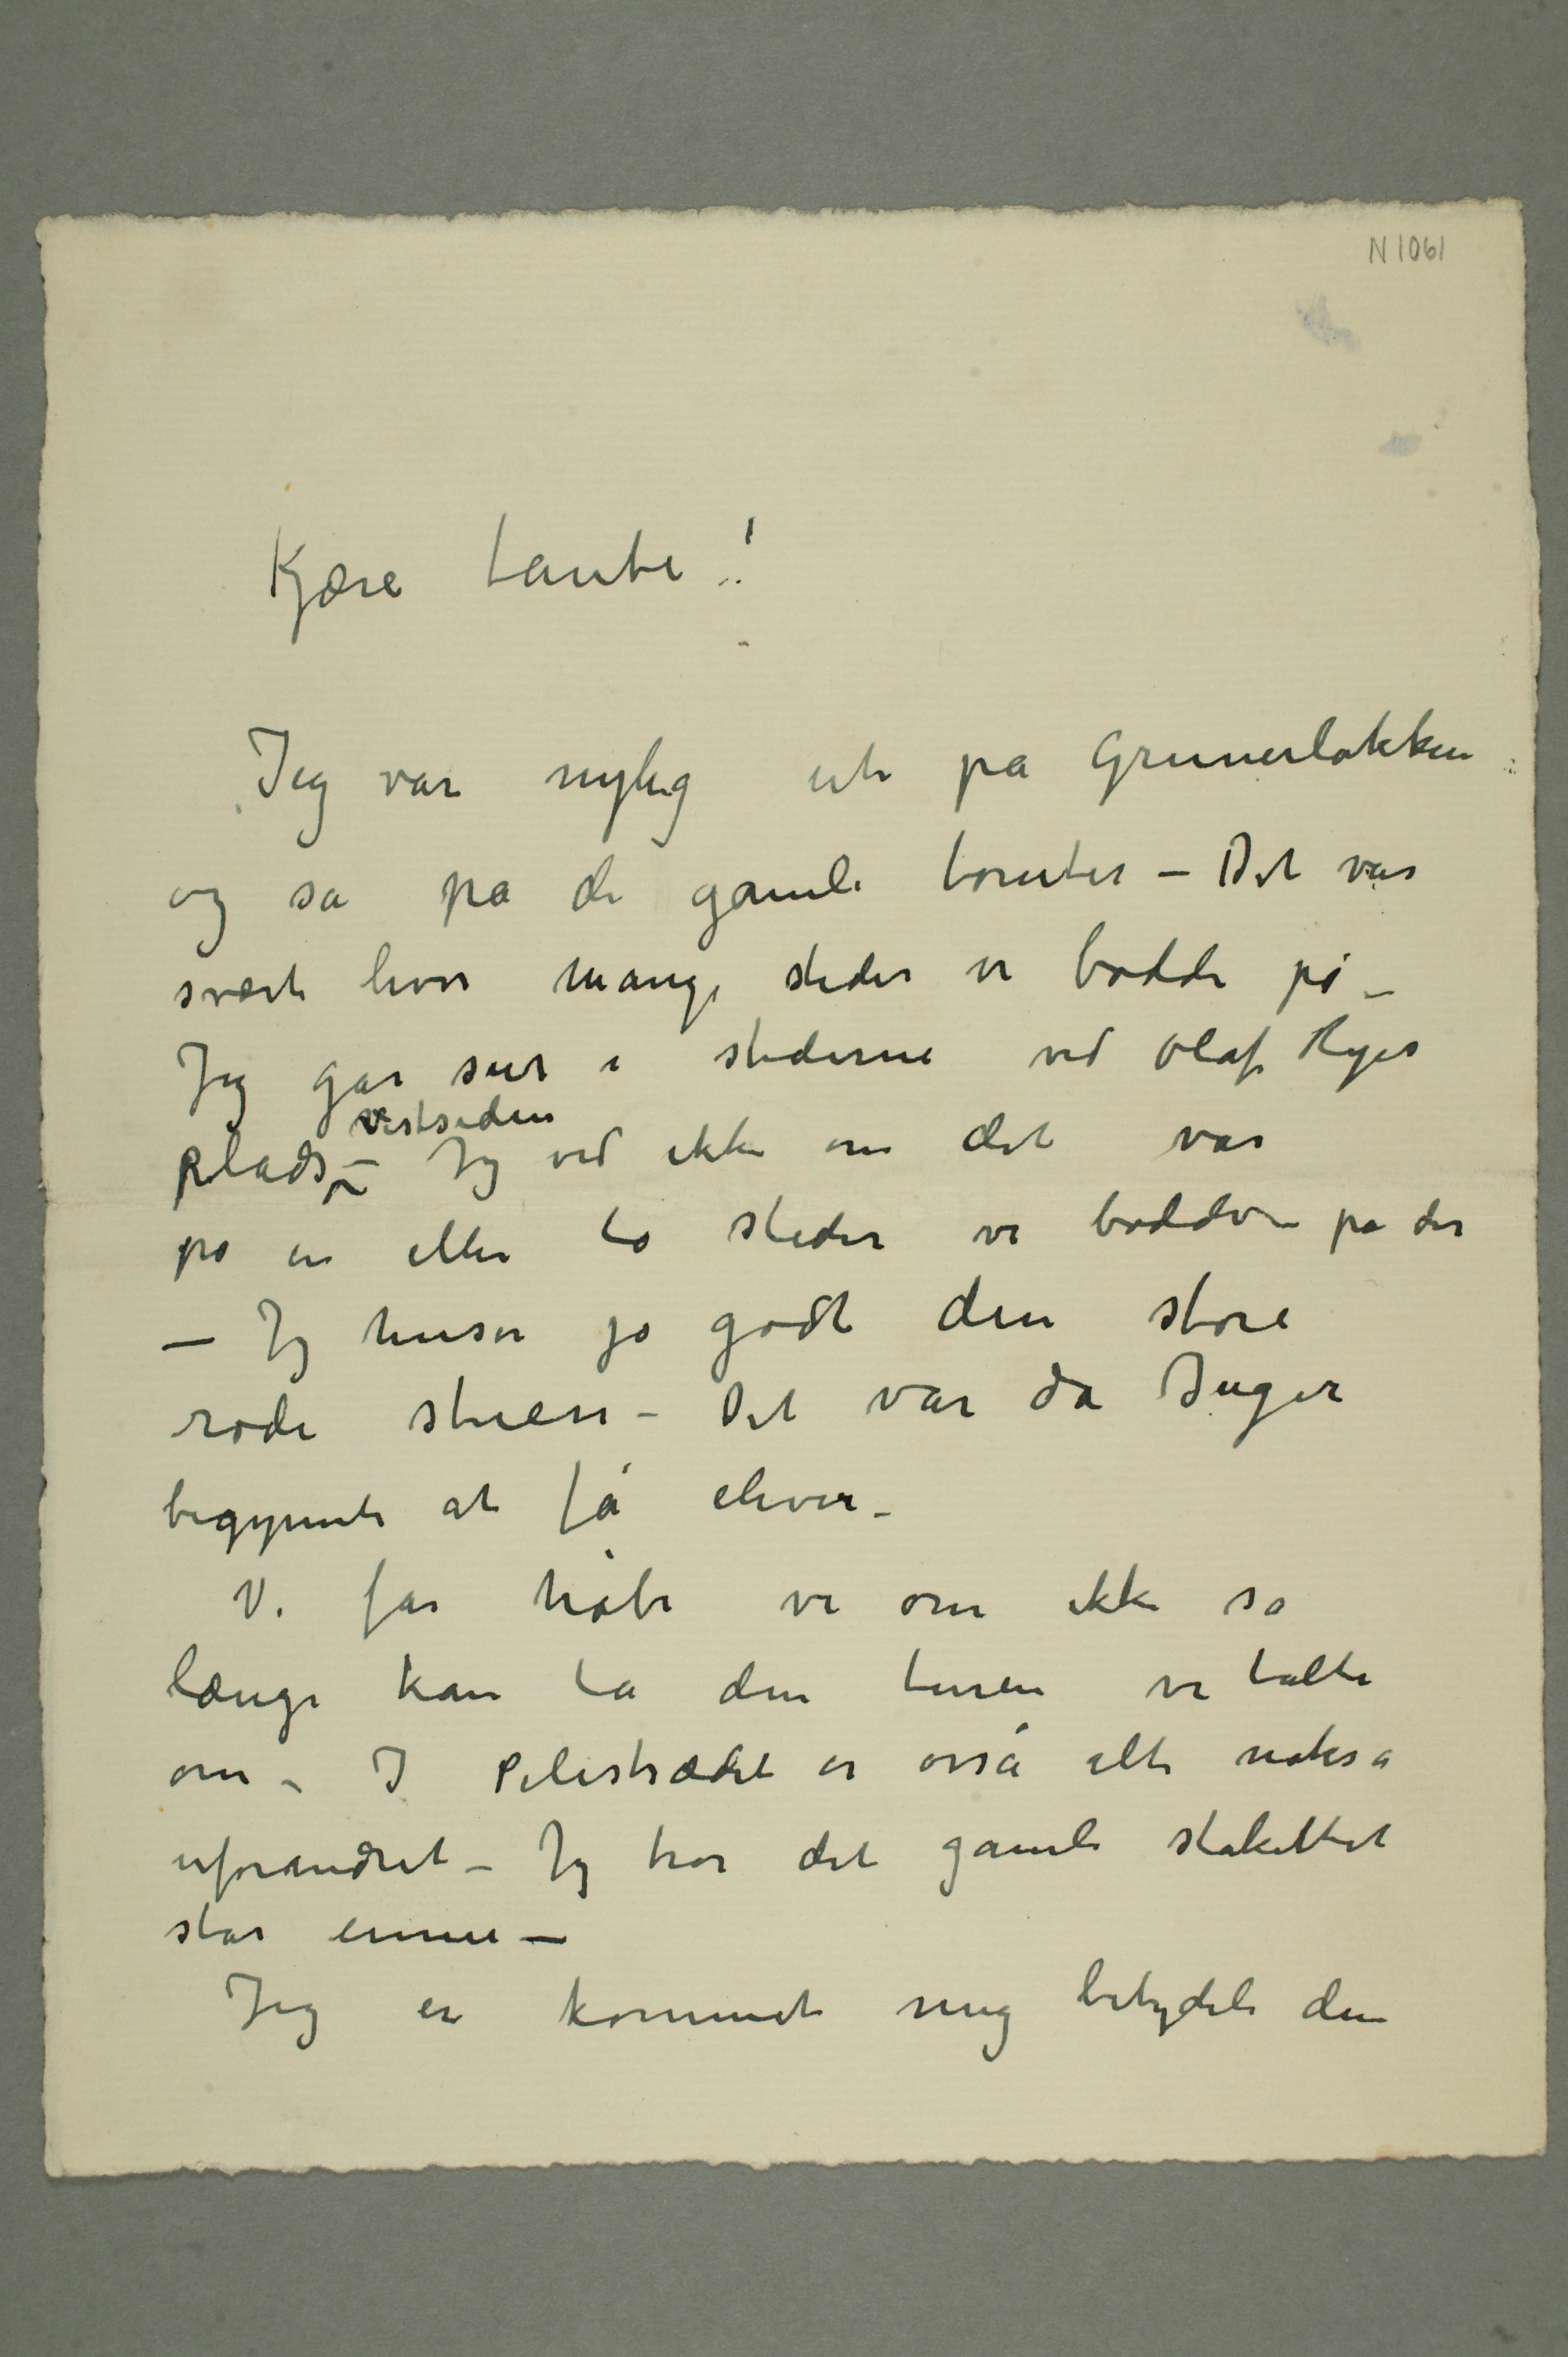 N 1061
Kjære tante!
Jeg var nylig ute på Grunerløkken
og så på de gamle tomter – Det var
svært hvor mange steder vi bodde på –
Jeg går surr i stederne ved Olaf Ryes
vestsiden
plads – Jeg ved ikke om det var
på en eller to steder vi bodde på der
– Jeg husker jo godt den store
røde stuen – Det var da Inger
begynnte at få elever –
Vi får håbe vi om ikke så
længe kan ta den turen vi talte
om – I Pilestrædet er osså alt nokså
uforandret – Jeg tror det gamle stakittet
står ennu –
Jeg er kommet mig betydeli den